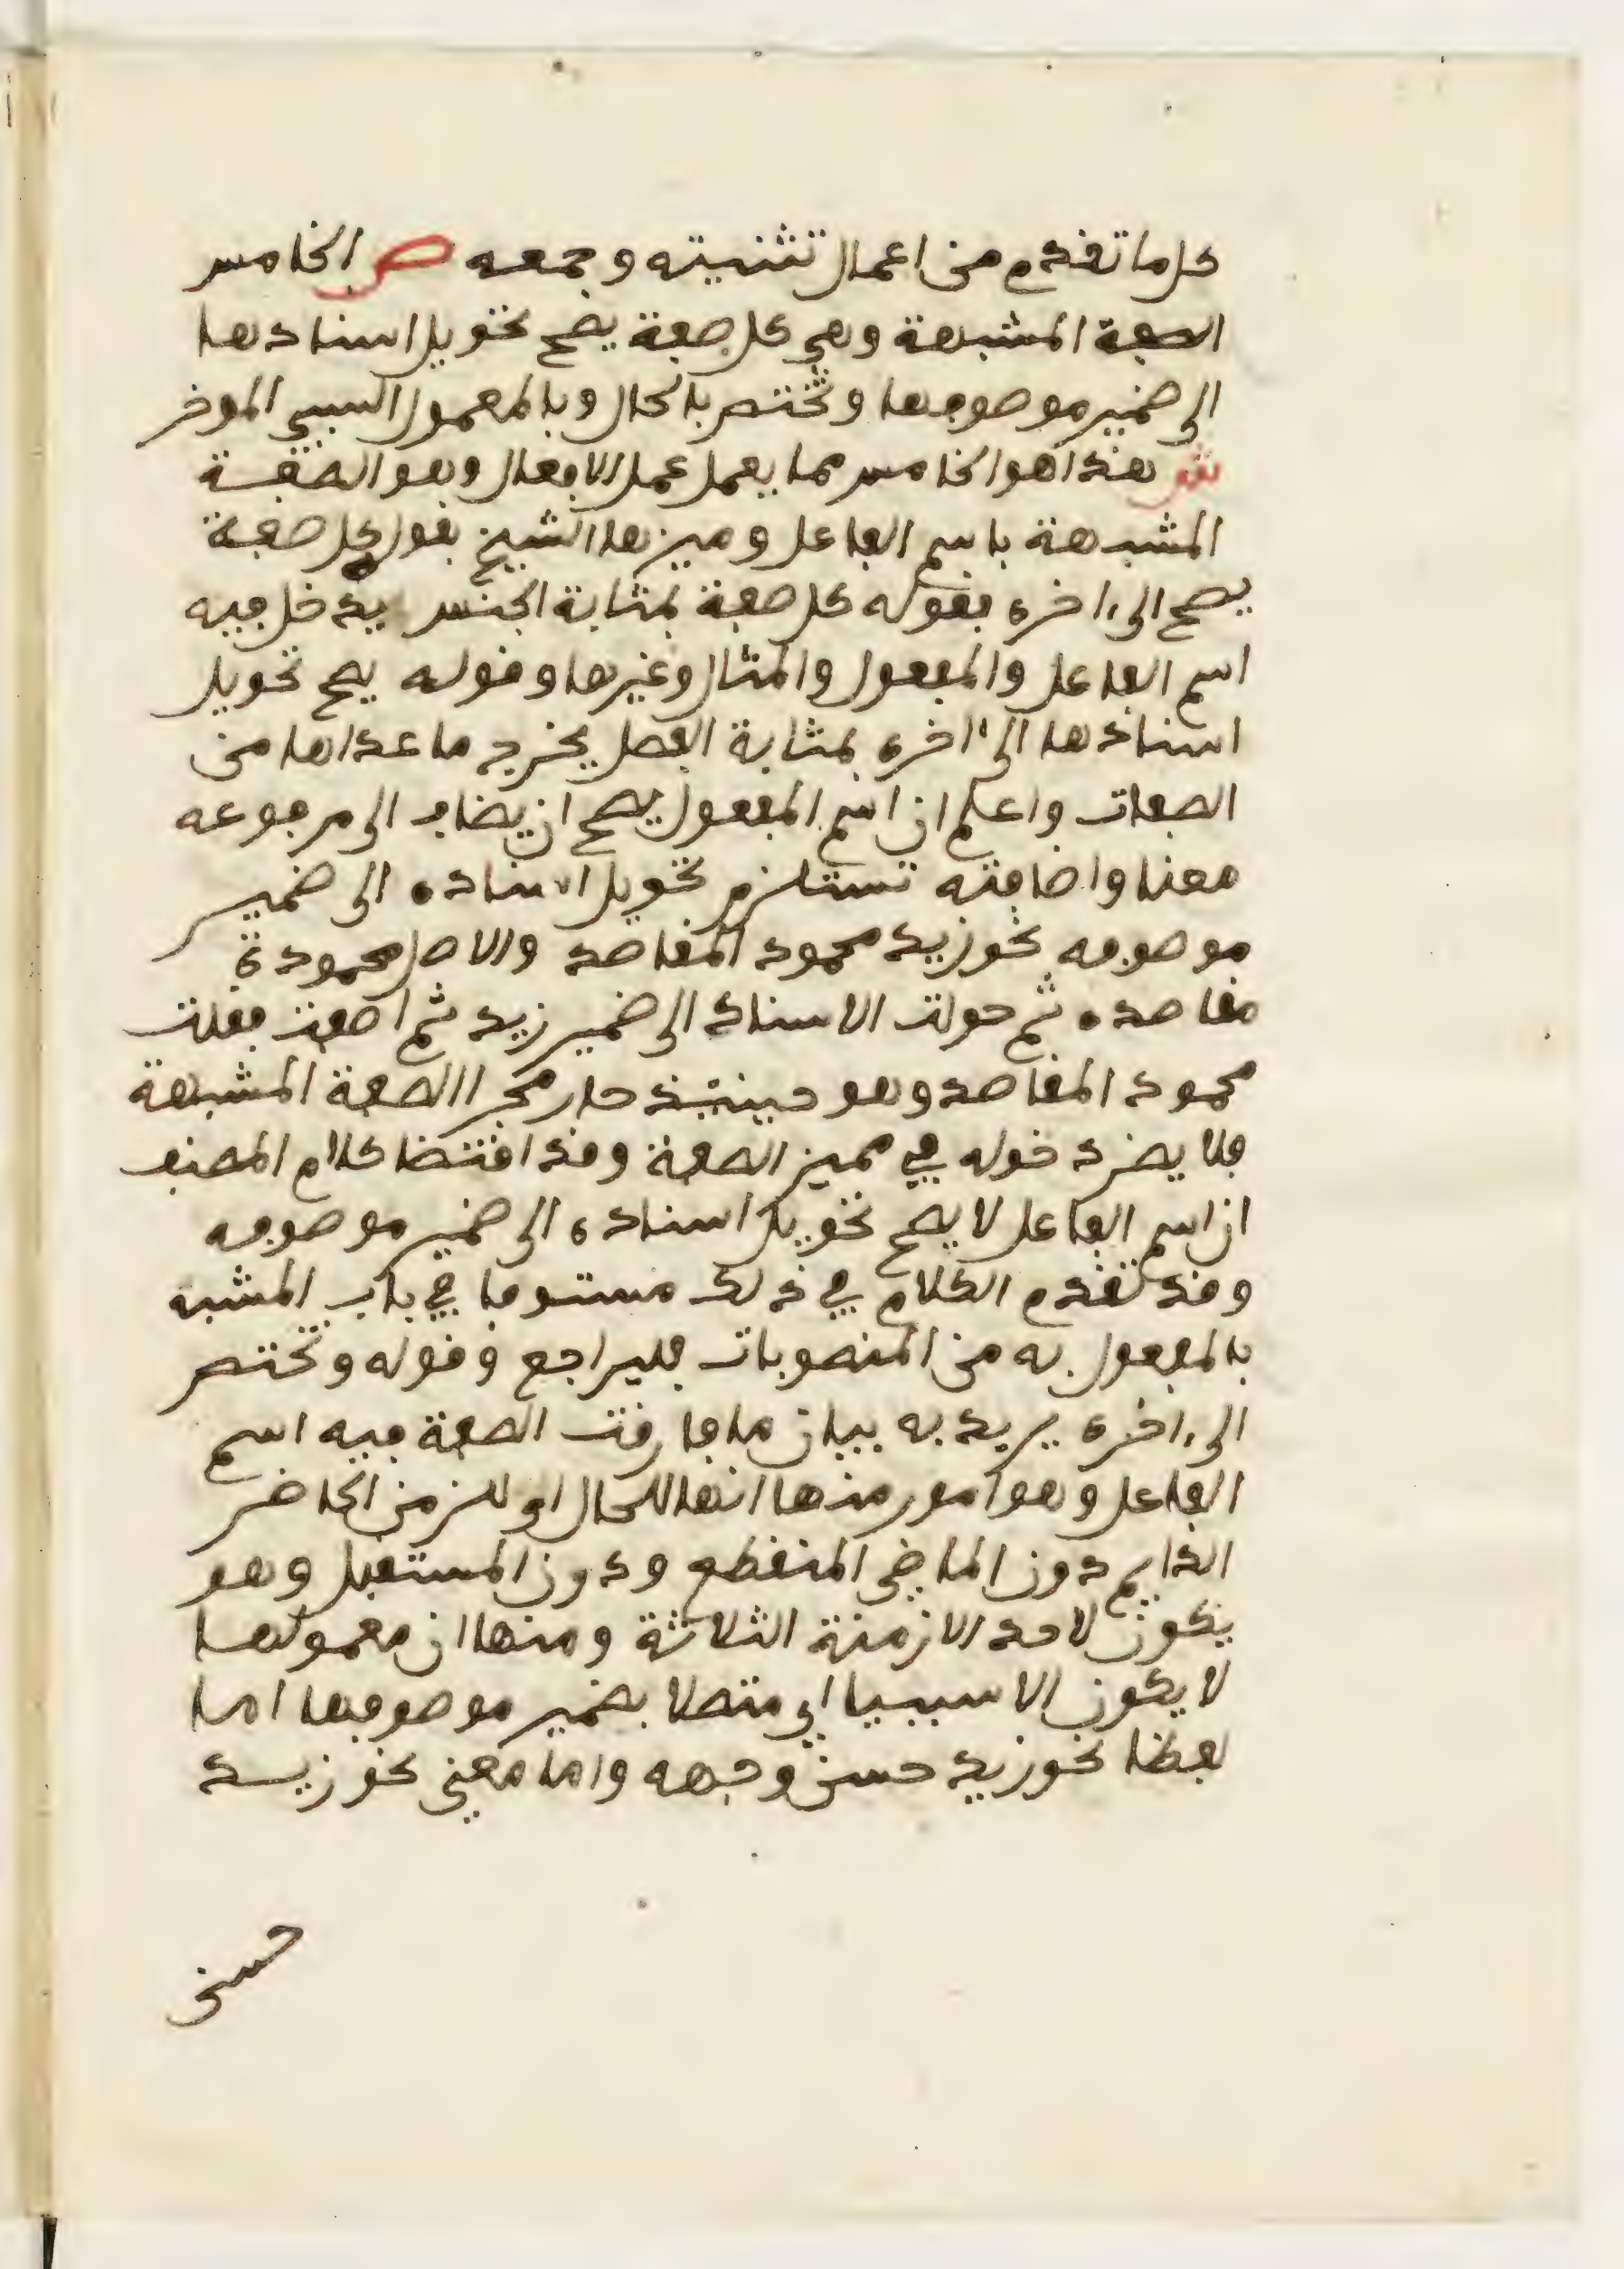 كل ما تقدم من اعمال تثنيته وجمعه ص الخامس
الصفة المشبهة وهي كل صفة يصح تحويل اسنادها
الى ضمير موصوفها وتختص بالحال وبالمعمول السببي الموخر
ش هذا هو الخامس مما يعمل عمل الافعال وهو الصفة
المشبهة باسم الفاعل وميزها الشيخ بقوله كل صفة
يصح الى ءاخره فقوله كل صفة بمثابة الجنس يدخل فيه
اسم الفاعل والمفعول والمثال وغيرها وقوله يصح تحويل
اسنادها الى ءاخره بمثابة الفصل يخرج ما عداها من
الصفات واعلم ان اسم المفعول يصح ان يضاف الى مرفوعه
معنا واضافته تستلزم تحويل اسناده الى ضمير
موصوفه نحو زيد محمود المقاصد والاصل محمودة
مقاصده ثم حولت الاسناد الى ضمير زيد ثم اضفت فقلت
محمود المقاصد وهو حينئذ جار مجرا الصفة المشبهة
فلا يضر دخوله في مميز الصفة وقد اقتضا كلام المصنف
ان اسم الفاعل لا يصح تحويل اسناده الى ضمير موصوفه
وقد تقدم الكلام في ذلك مستوفا في باب المشبه
بالمفعول به من المنصوبات فليراجع وقوله وتختص
الى ءاخره يريد به بيان ما فارقت الصفة فيه اسم
الفاعل وهو امور منها انها للحال اي للزمن الحاضر
الدايم دون الماضي المنقطع ودون المستقبل وهو
يكون لاحد الازمنة الثلاثة ومنها ان معمولها
لا يكون الا سببيا اي متصلا بضمير موصوفها اما
لفظا نحو زيد حسن وجهه واما معنى نحو زيد
حسن